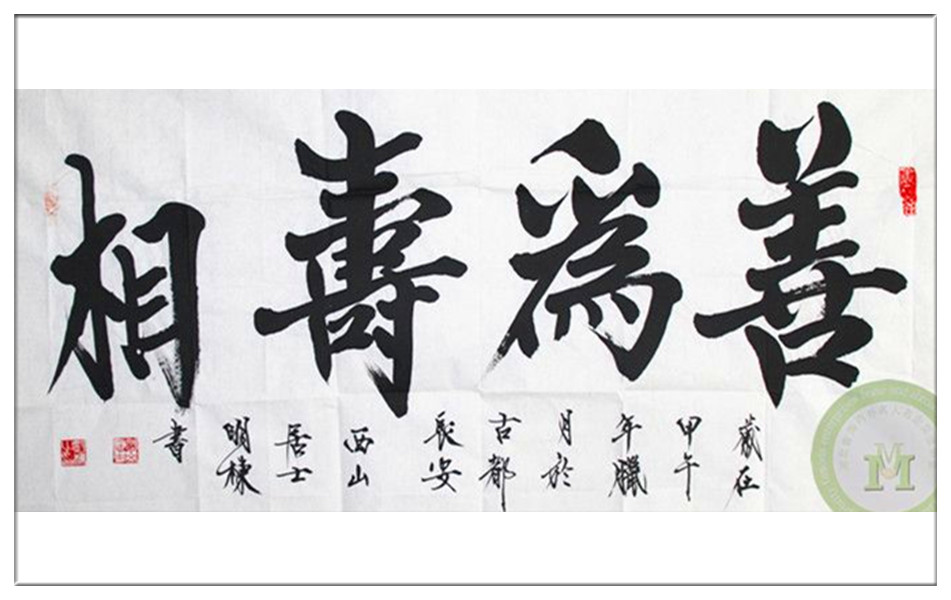 善為壽相
歲在
甲午
年臘
月於
古都
長安
西山
居士
明棟
書